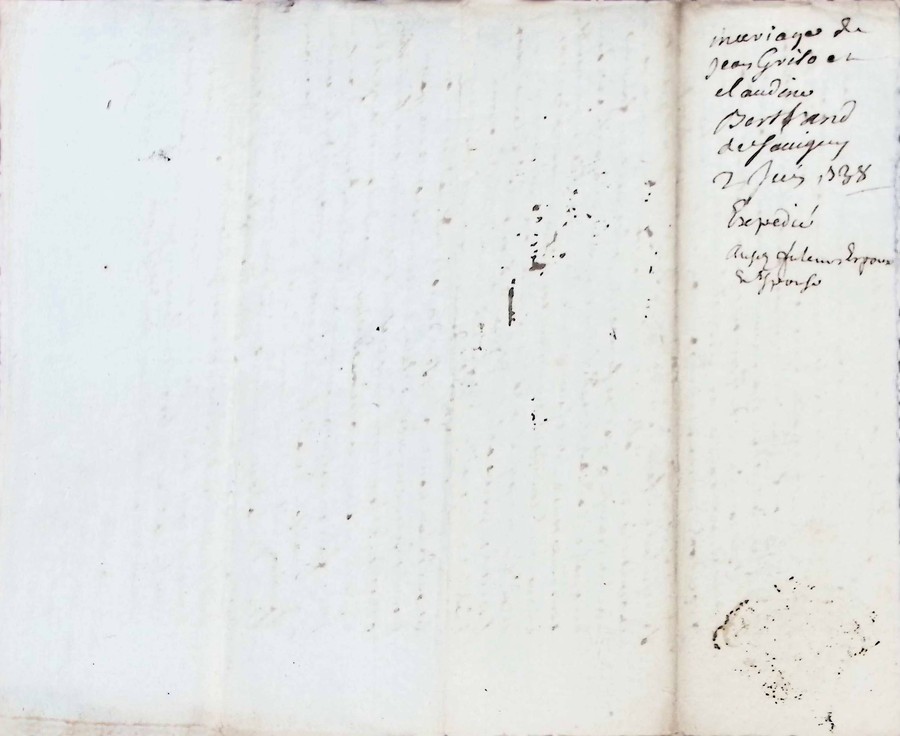 mariage de
Jean Griso et
claudine
Bertrand
de Savigny
2 Juin 1738
Expedié
Epoux
Et Epouse